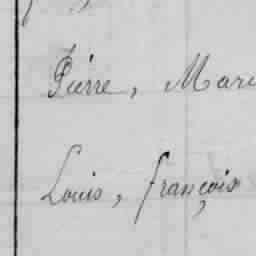 Pierre, Mari
Louis, françois